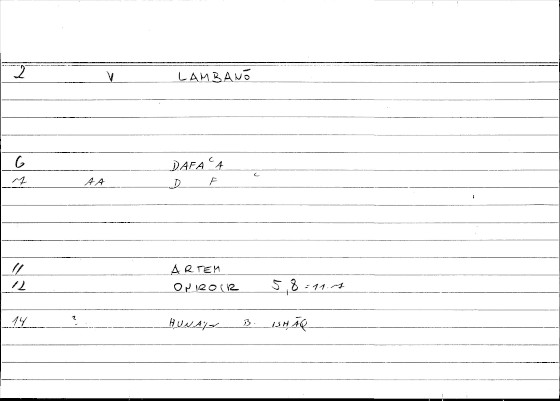 2 V LAMBANŌ
6 DAFAᶜA
7 AA D F ᶜ
11 ARTEM
12 ONIROCR 5,8 = 11 7
14 ? HUNAYN B. ISHĀQ